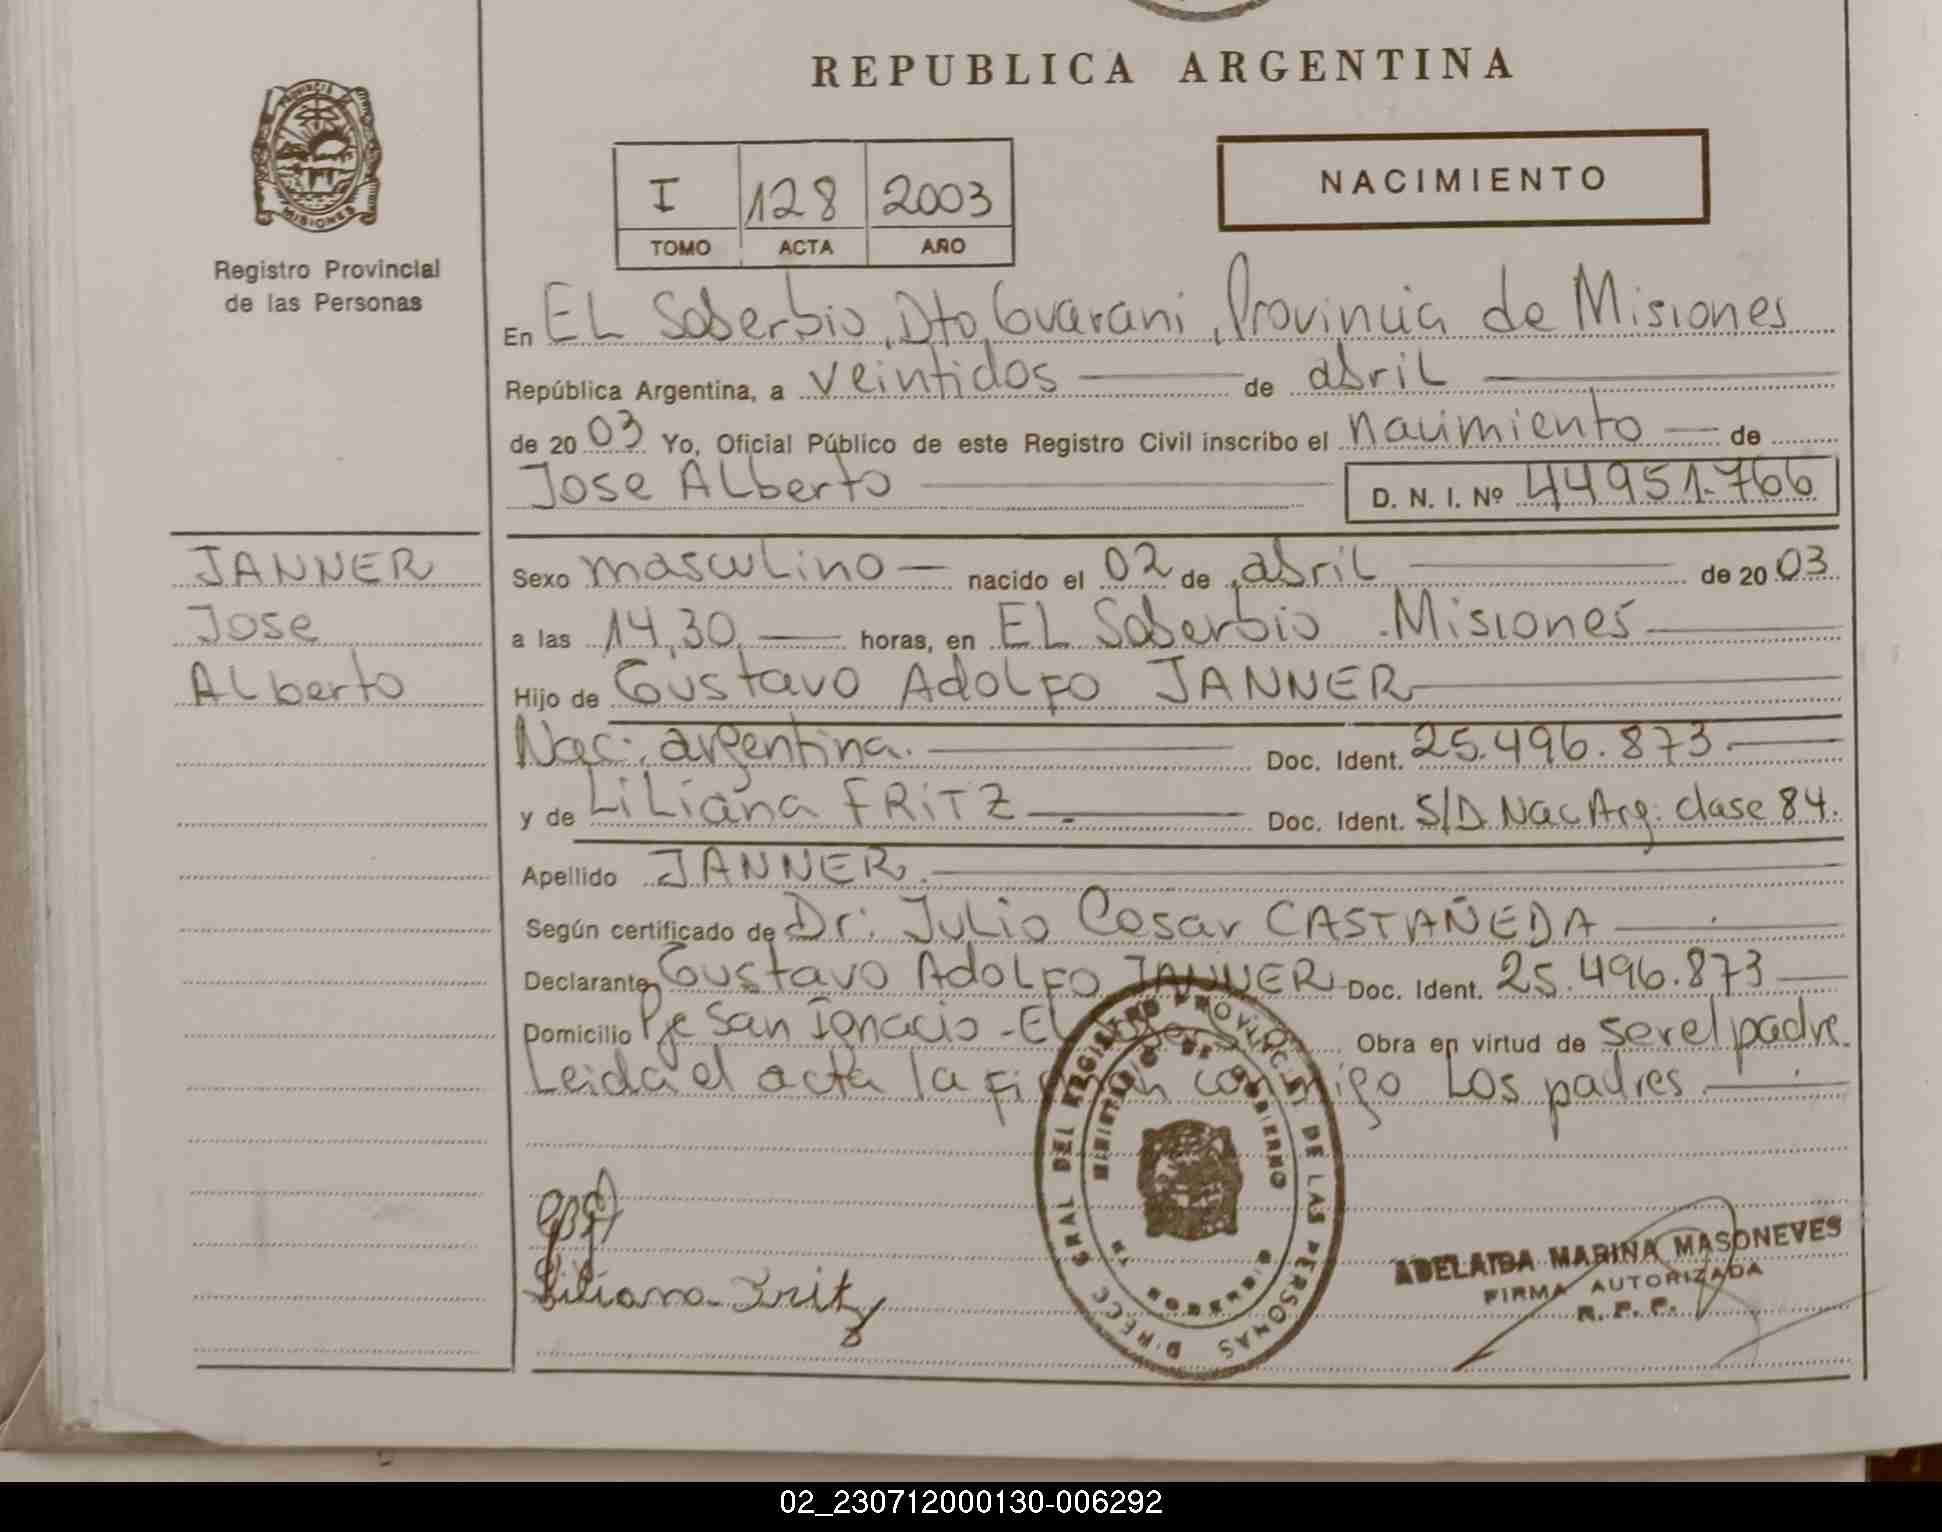 REPUBLICA ARGENTINA
PROVINCIA DE
MISIONES
Registro Provincial
de las Personas
I 128 2003
TOMO ACTA AÑO
NACIMIENTO
En EL Soberbio, Dto, Guarani, Provincia de Misiones
República Argentina, a veintidos de abril
de 2003 Yo, Oficial Público de este Registro Civil inscribo el nacimiento de
Jose ALberto D. N. I. Nº 44951.766
JANNER
Jose
ALberto
Sexo mascuLino nacido el 02 de abriL de 2003
a las 14,30 horas, en EL Soberbio - Misiones
Hijo de Gustavo AdoLfo JANNER
Nac: argentina. Doc. Ident. 25.496.873.
y de LiLiana FRiTZ Doc. Ident. S/D. Nac Arg. clase 84.
Apellido JANNER.
Según certificado de Dr. JuLio Cesar CASTAÑEDA
Declarante Gustavo AdoLfo JANNER Doc. Ident. 25.496.873
Domicilio Pje San Ignacio - EL Soberbio Obra en virtud de ser el padre.
Leida el acta la firman conmigo Los padres
DIREC. GRAL DEL REGISTRO PROVINCIAL DE LAS PERSONAS
MINISTERIO DE GOBIERNO
MISIONES
Liliana Fritz
ADELAIDA MARINA MASONEVES
FIRMA AUTORIZADA
R. P. P.
02_230712000130-006292